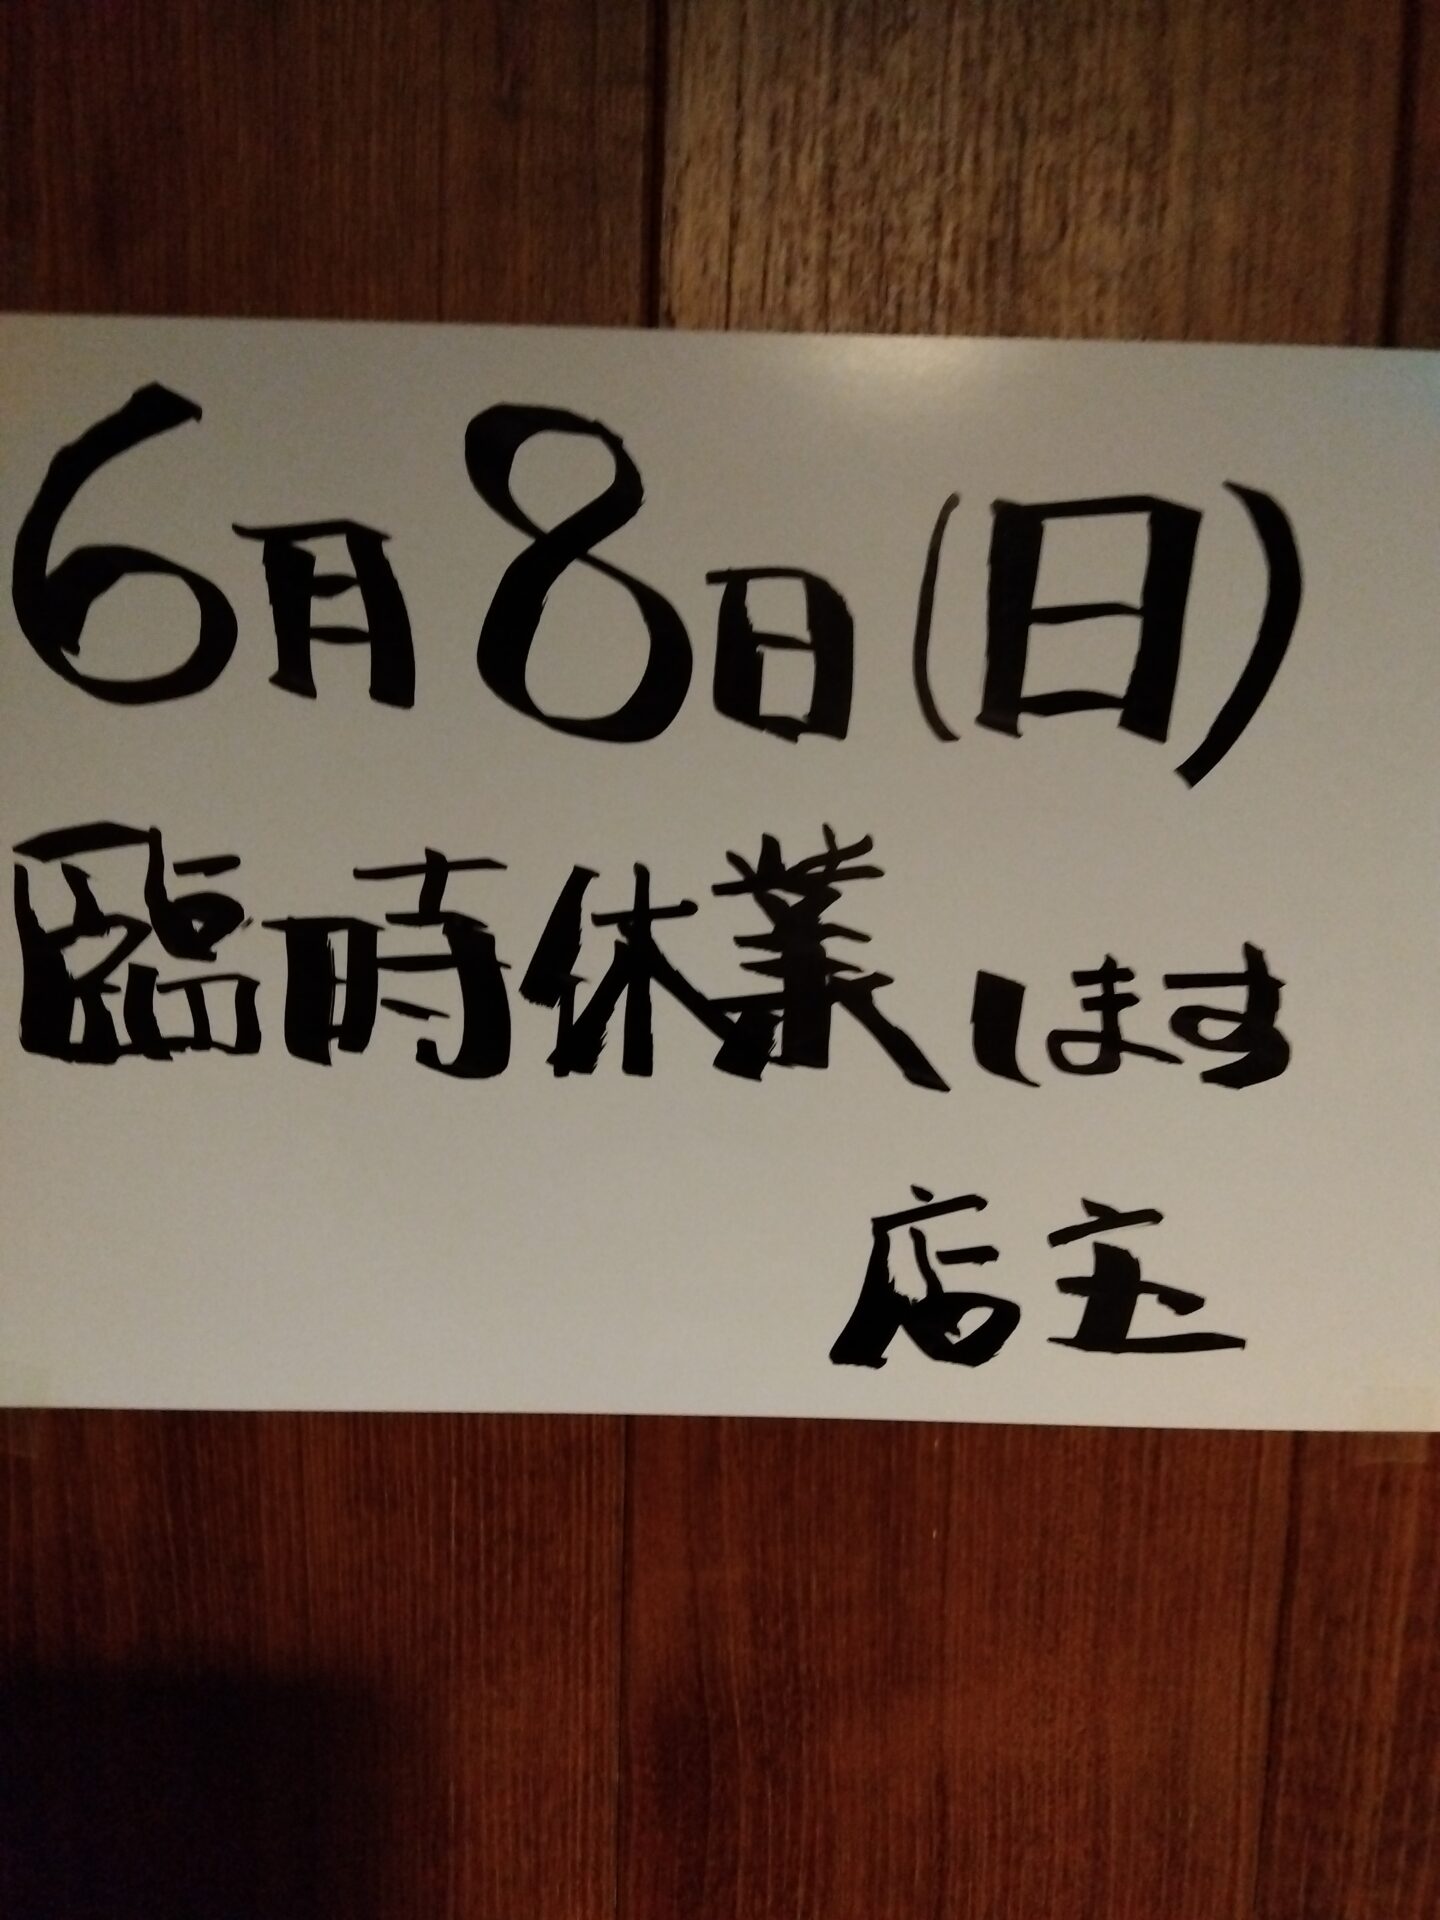 6月8日(日)
臨時休業します
店主